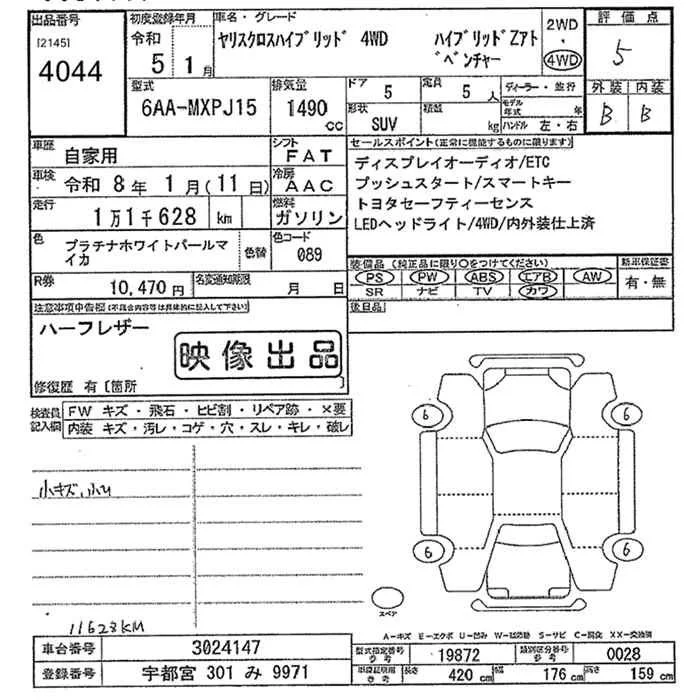 出品番号
[2145]
4044
初度登録年月
令和
5 1月
車名・グレード
ヤリスクロスハイブリッド 4WD ハイブリッドZアドベンチャー
2WD
・
4WD
評価点
5
外装 内装
B B
型式
6AA-MXPJ15
排気量
1490
cc
ドア
5
定員
5人
形状
SUV
積載
kg
ディーラー・並行
モデル年式
年
ハンドル 左・右
車歴
自家用
シフト
FAT
車検
令和 8年 1月(11日)
冷房
AAC
走行
1万1千628 km
燃料
ガソリン
セールスポイント(正常に機能するものに限ります)
ディスプレイオーディオ/ETC
プッシュスタート/スマートキー
トヨタセーフティーセンス
LEDヘッドライト/4WD/内外装仕上済
色
プラチナホワイトパールマイカ
色替
色コード
089
R券
10,470円
名変通知期限
月 日
装備品(純正品に限り○をつけてください)
PS PW ABS エアB AW
SR ナビ TV カワ
新車保証書
有・無
後日品
注意事項申告欄(不具合内容等は具体的に記入して下さい)
ハーフレザー
映像出品
修復歴 有 [箇所 ]
検査員記入欄
FW キズ・飛石・ヒビ割・リペア跡・×要
内装 キズ・汚レ・コゲ・穴・スレ・キレ・破レ
小キズ
11628KM
6 6
6 6
スペア
A-キズ E-エクボ U-凹み
車台番号
3024147
登録番号
宇都宮 301 み 9971
型式指定番号
参考
19872
類別区分番号
参考
0028
長さ 420 cm 幅 176 cm 高さ 159 cm